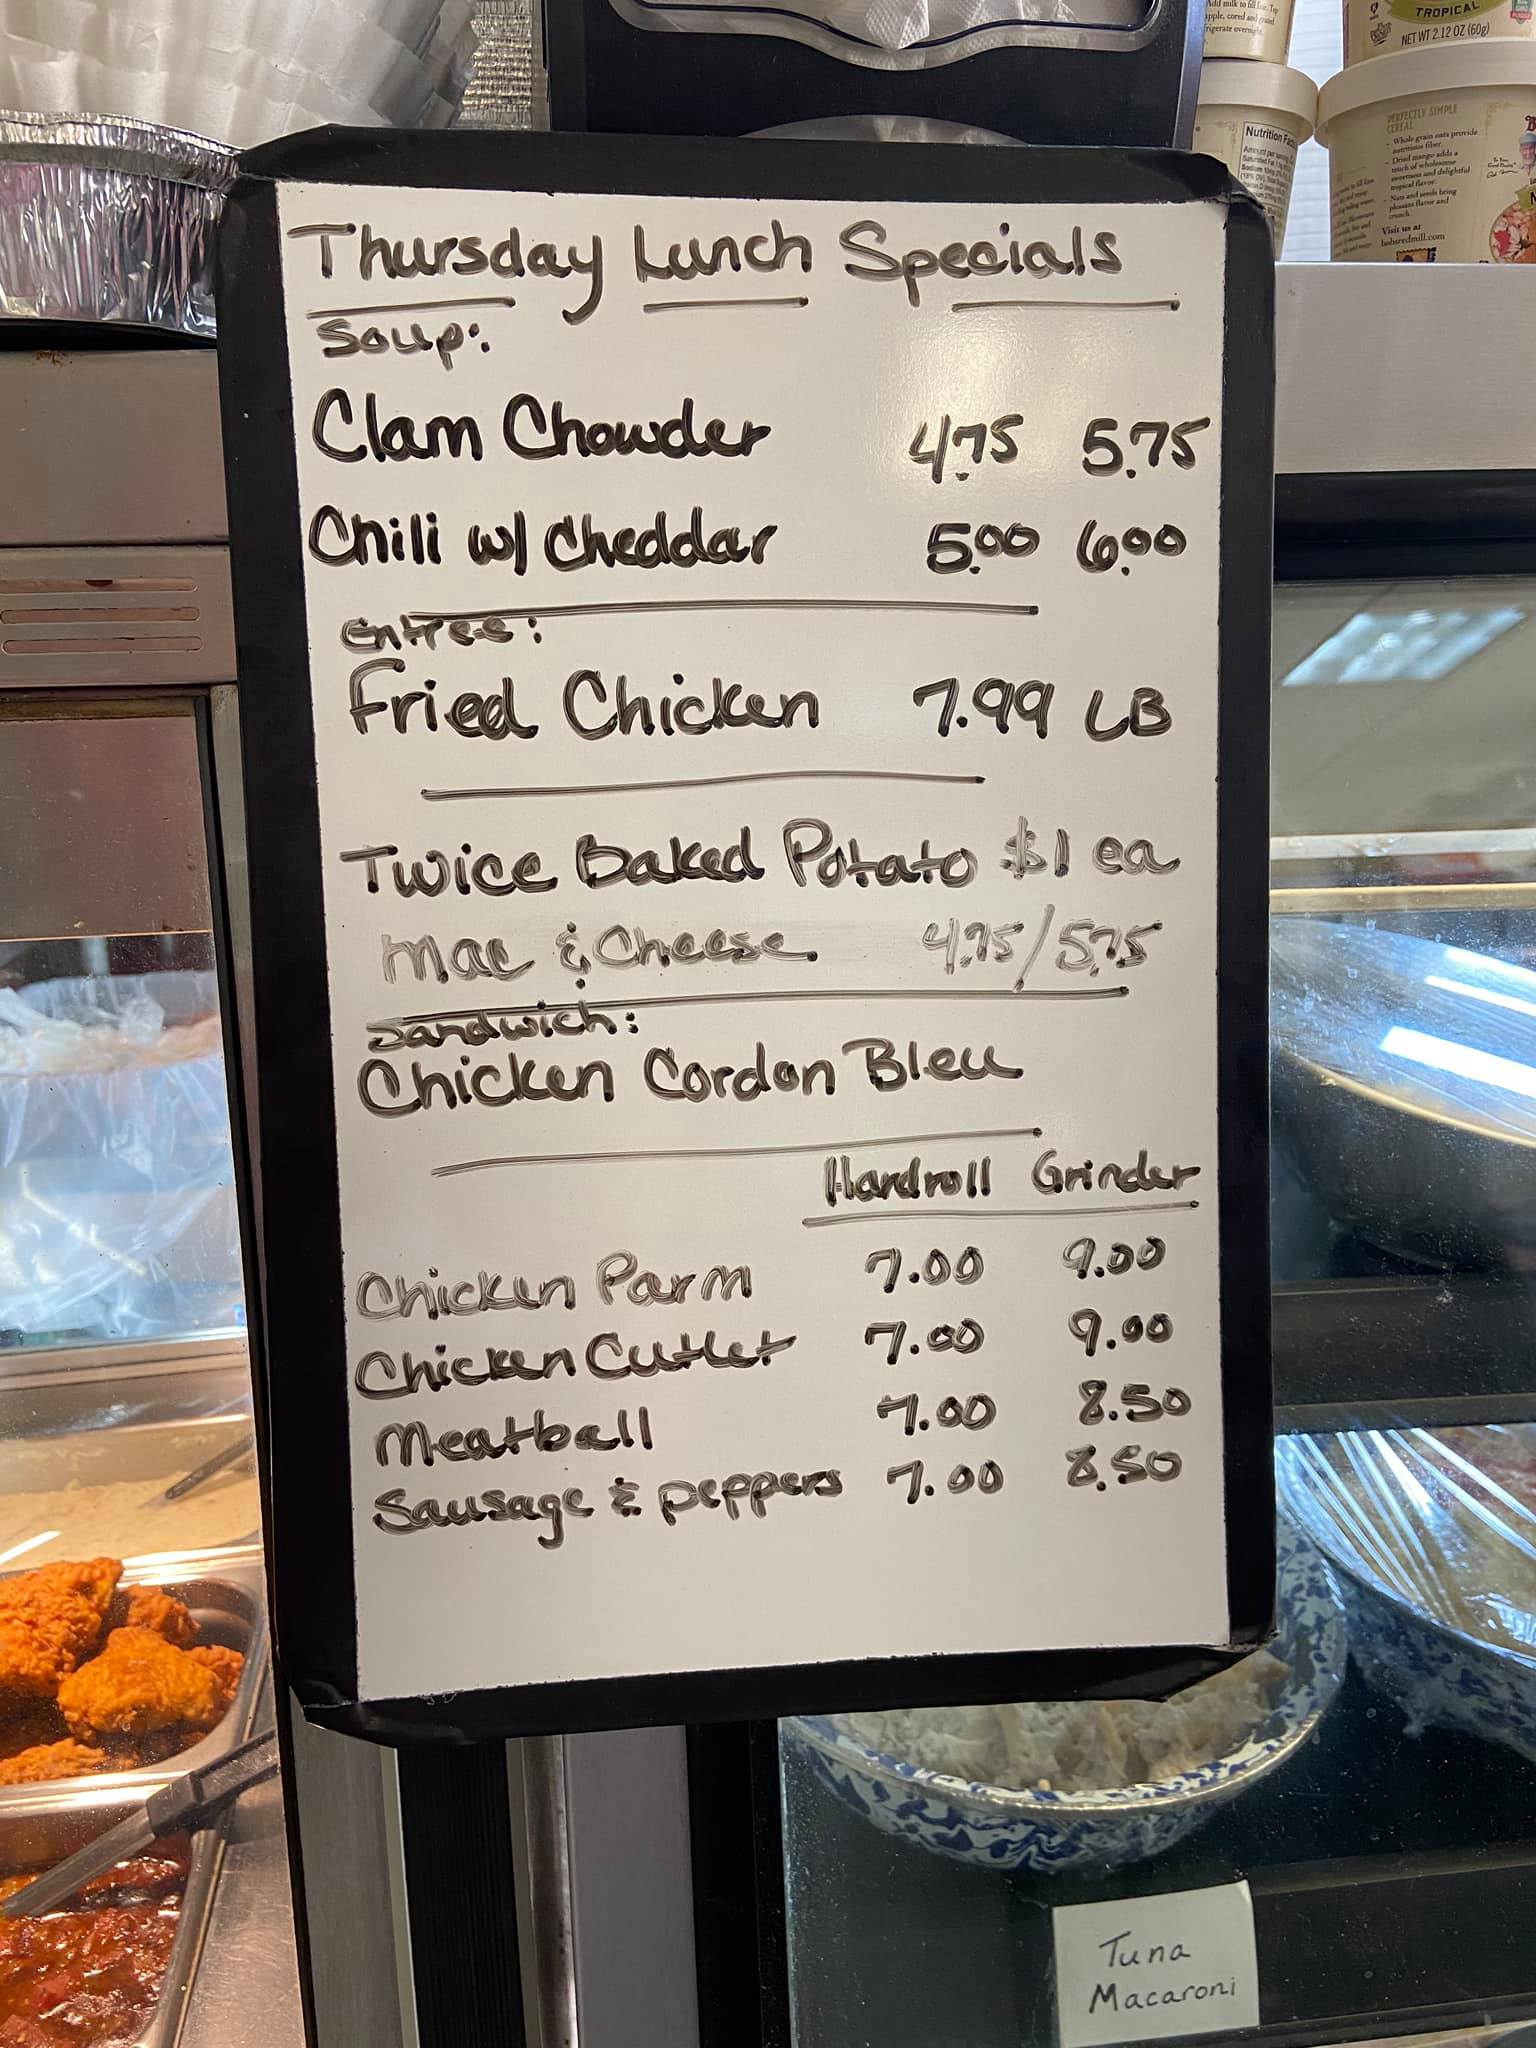 Add milk to fill line. Top
apple, cored and grated
TROPICAL
NET WT 2.12 OZ (60g)
PERFECTLY SIMPLE
CEREAL
- Whole grain oats provide
nutritious fiber.
- Dried mango adds a
touch of wholesome
sweetness and delightful
tropical flavor.
- Nuts and seeds bring
pleasant flavor and
crunch.
Visit us at
bobsredmill.com
Nutrition Fac
Thursday Lunch Specials
Soup:
Clam Chowder 4.75 5.75
Chili w/ Cheddar 5.00 6.00
Entree:
Fried Chicken 7.99 LB
Twice Baked Potato $1 ea
Mac & Cheese 4.75/5.75
Sandwich:
Chicken Cordon Bleu
Hardroll Grinder
Chicken Parm 7.00 9.00
Chicken Cutlet 7.00 9.00
Meatball 7.00 8.50
Sausage & peppers 7.00 8.50
Tuna
Macaroni